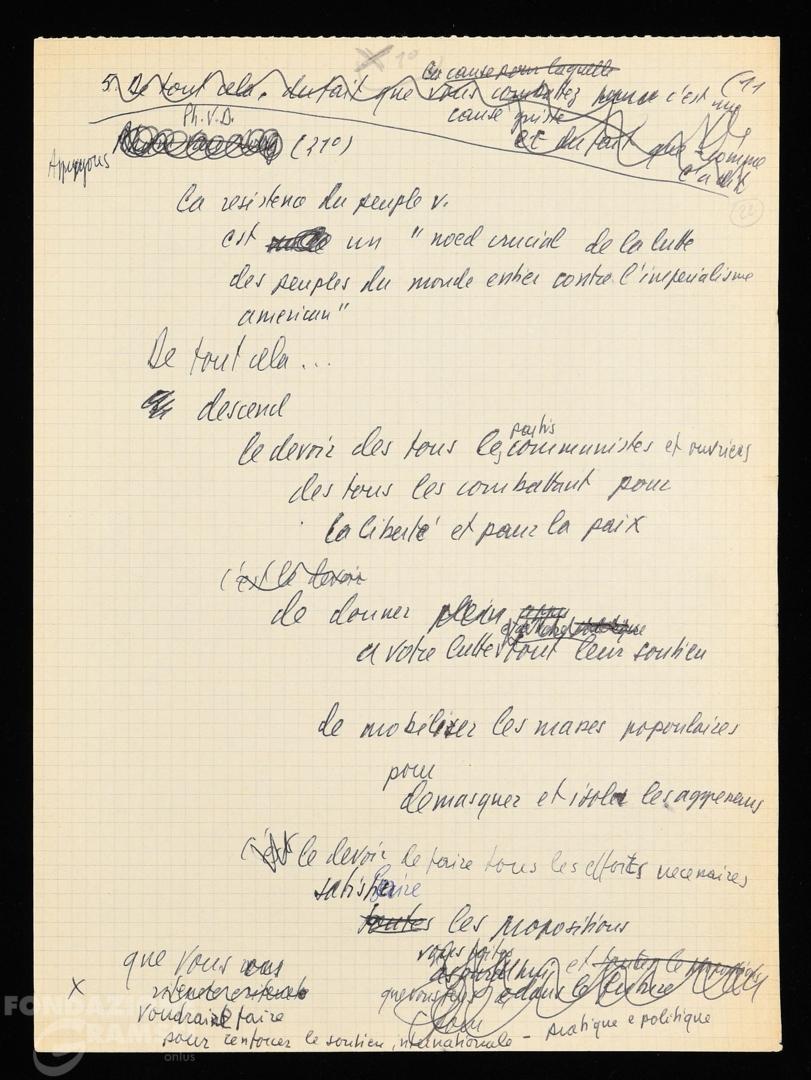 (11
la cause pour laquelle
5 De tout cela, du fait que vous combattez pour c'est une
cause juste
et du fait que comme
Ph. V. D.
(21°)
Appuyons
22
la resistence du peuple v.
est un "noed crucial de la lutte
des peuples du monde entier contre l'imperialisme
american"
De tout cela...
descend
partis
le devoir des tous les communistes et ouvriers
des tous les combattant pour
la liberté et pour la paix
c'est le devoir
de donner plein
a votre lutte tout leur soutien
de mobiliser les masses popoulaires
pour
demasquer et isoler les aggresseurs
C'est le devoir de faire tous les efforts necenaires
satisfaire
toutes les propositions
que vous
vous faites
aujourd'hui et toutes le propositions
que vous dans le future
x
voudraie faire
pour renforcer le soutien, internationale - pratique e politique
FONDAZIONE
GRAMSCI
onlus